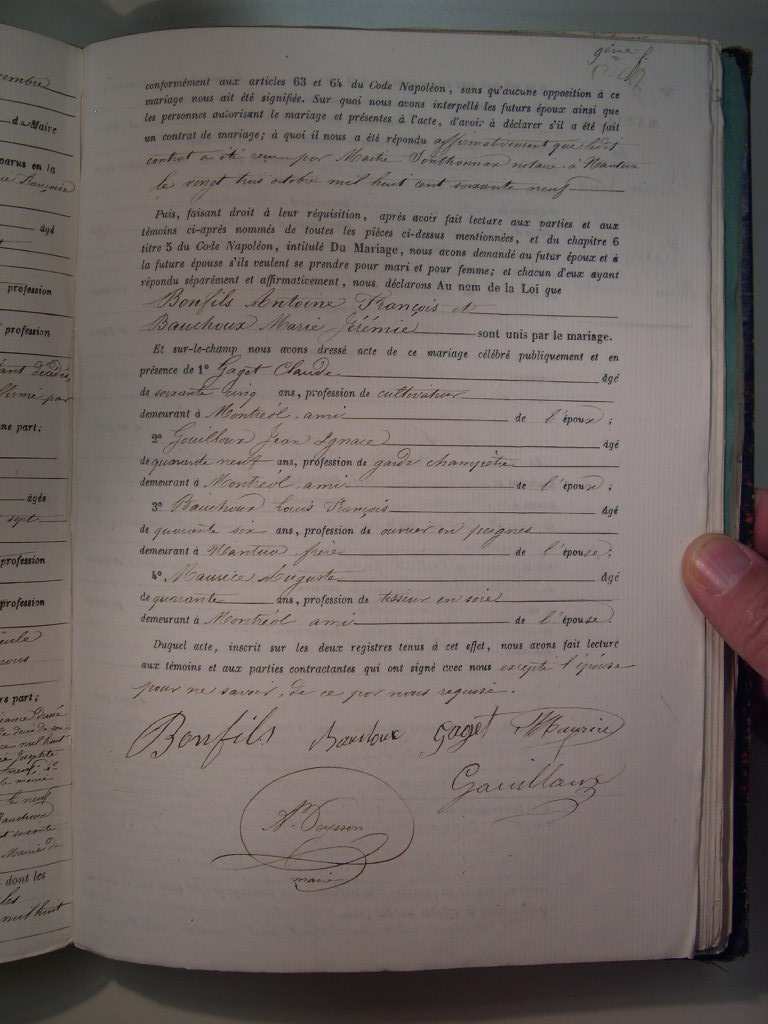 cembre
du Maire
parus en la
âgé
profession
profession
ne part;
âgés
sept
profession
profession
nous
rs part;
dont les
mil huit
conformément aux articles 63 et 64 du Code Napoléon, sans qu'aucune opposition à ce
mariage nous ait été signifiée. Sur quoi nous avons interpellé les futurs époux ainsi que
les personnes autorisant le mariage et présentes à l'acte, d'avoir à déclarer s'il a été fait
un contrat de mariage; à quoi il nous a été répondu affirmativement que ledit
contrat a été reçu par Maitre Southonnax notaire à Nantua
le vingt trois octobre mil huit cent soixante neuf
Puis, faisant droit à leur réquisition, après avoir fait lecture aux parties et aux
témoins ci-après nommés de toutes les pièces ci-dessus mentionnées, et du chapitre 6
titre 5 du Code Napoléon, intitulé Du Mariage, nous avons demandé au futur époux et à
la future épouse s'ils veulent se prendre pour mari et pour femme; et chacun d'eux ayant
répondu séparément et affirmativement, nous déclarons Au nom de la Loi que
Bonfils Antoine François et
Bauchoux Marie Jérémie sont unis par le mariage.
Et sur-le-champ nous avons dressé acte de ce mariage célébré publiquement et en
présence de 1° Gaget Claude âgé
de soixante cinq ans, profession de cultivateur
demeurant à Montréól ami de l'époux;
2° Gouilloux Jean Ignace âgé
de quarante neuf ans, profession de garde champêtre
demeurant à Montréól ami de l'époux;
3° Bauchoux Louis François âgé
de quarante six ans, profession de ouvrier en peignes
demeurant à Nantua frère de l'épouse;
4° Maurice Auguste âgé
de quarante ans, profession de tisseur en soie
demeurant à Montréól ami de l'épouse.
Duquel acte, inscrit sur les deux registres tenus à cet effet, nous avons fait lecture
aux témoins et aux parties contractantes qui ont signé avec nous excepté l'épouse
pour ne savoir, de ce par nous requise.
Bonfils Bauchoux Gaget Maurice
Gouilloux
maire